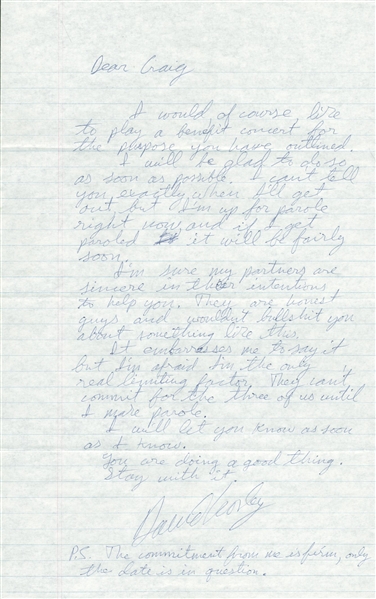 Dear Craig
I would of course like
to play a benefit concert for
the purpose you have outlined.
I will be glad to do so
as soon as possible. I can't tell
you exactly when I'll get
out but I'm up for parole
right now, and if I get
paroled it will be fairly
soon.
I'm sure my partners are
sincere in their intentions
to help you. They are honest
guys and wouldn't bullshit you
about something like this.
It embarrasses me to say it
but I'm afraid I'm the only
real limiting factor. They can't
commit for the three of us until
I make parole.
I will let you know as soon
as I know.
You are doing a good thing.
Stay with it.
David Crosby
P.S. The commitment from me is firm, only
the date is in question.